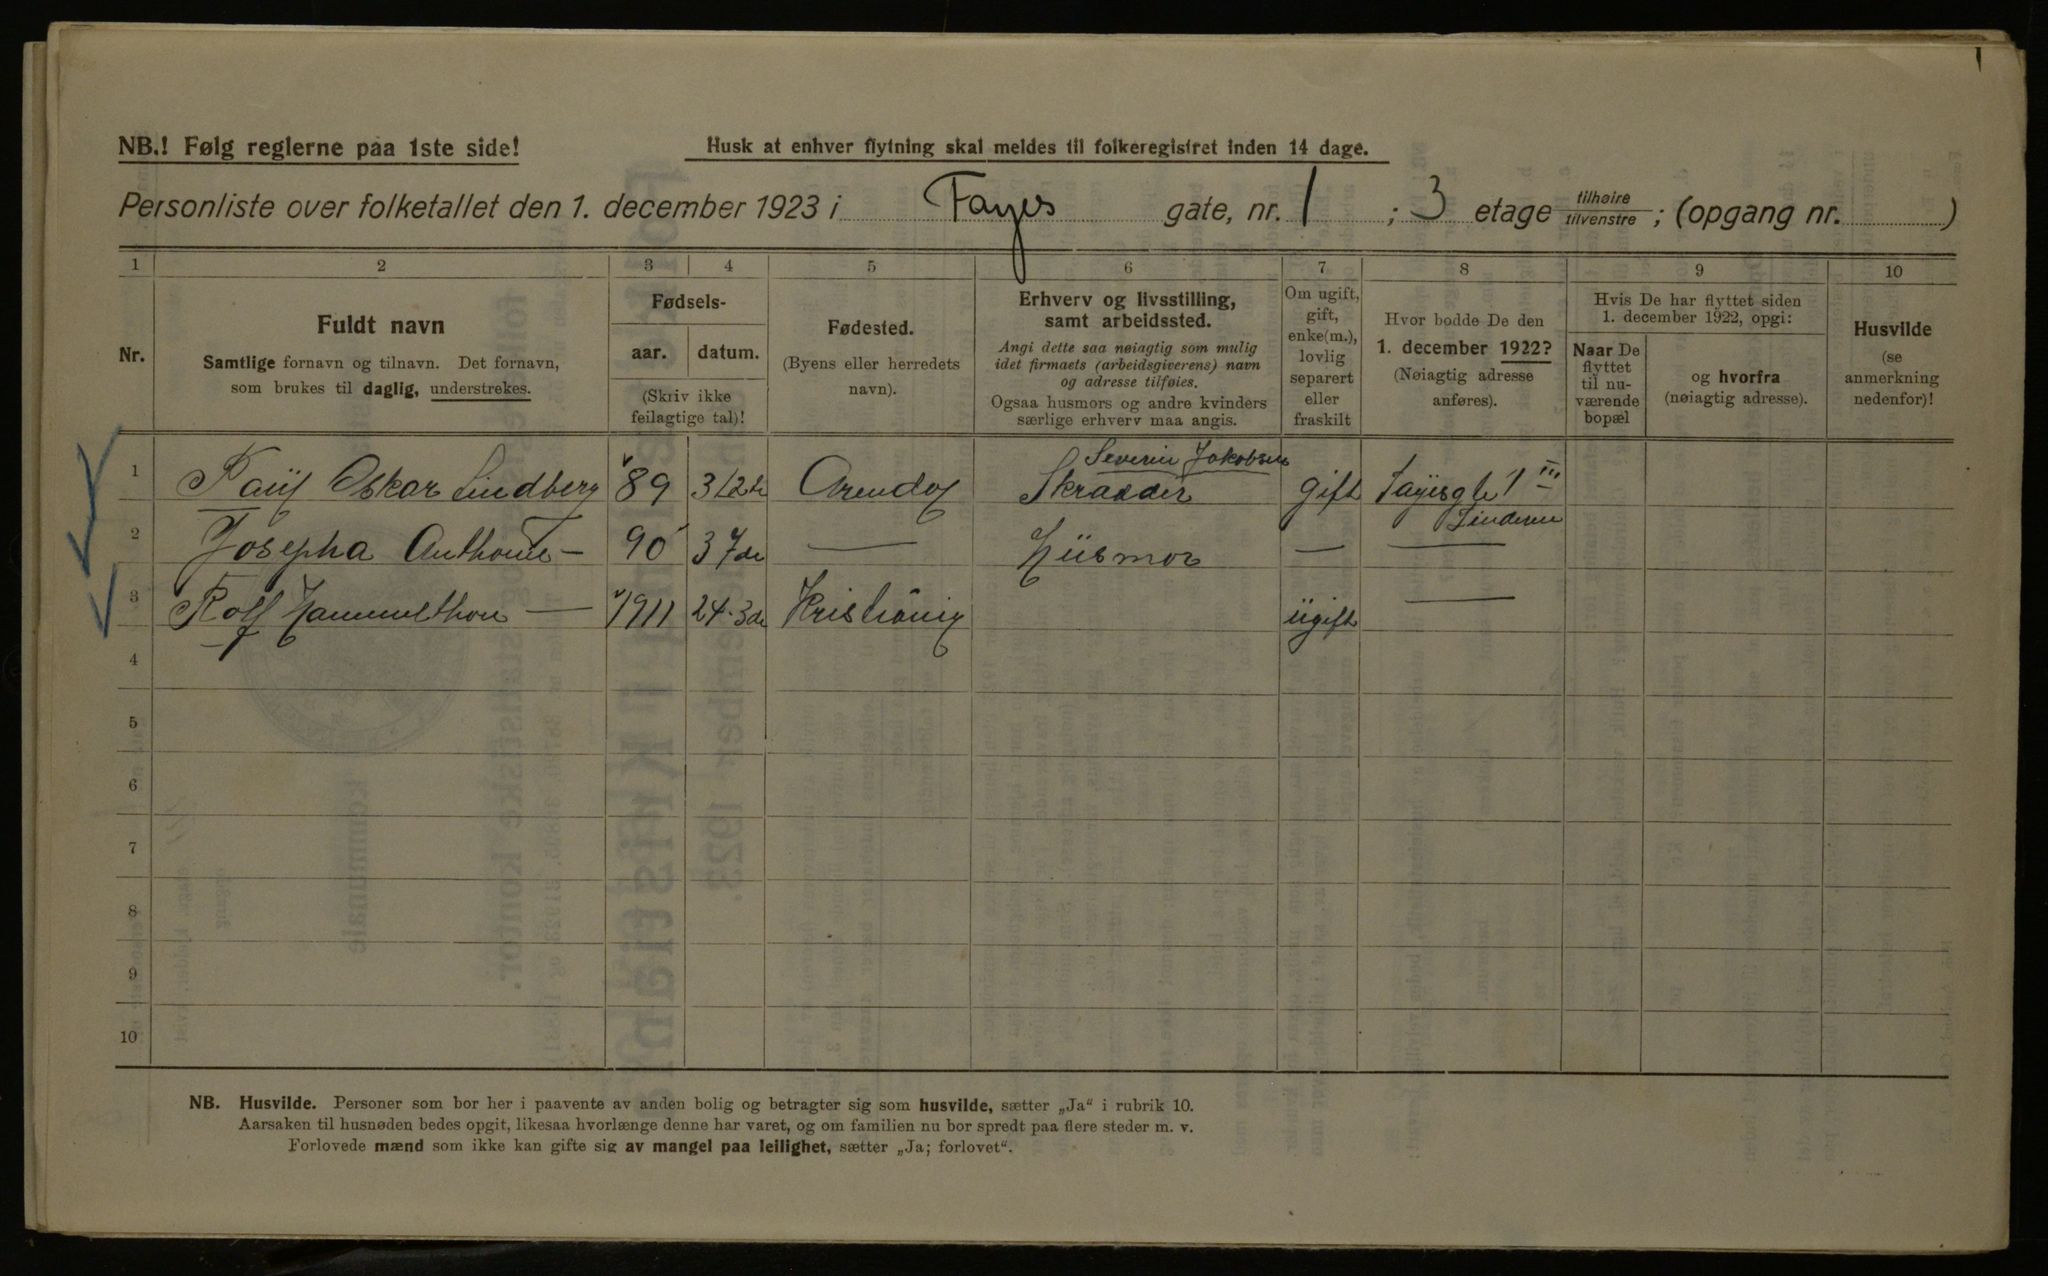 NB.! Følg reglerne paa 1ste side!
Husk at enhver flytning skal meldes til folkeregistret inden 14 dage.
Personliste over folketallet den 1. december 1923 i Fayes gate, nr. 1 ; 3 etage tilhøire tilvenstre ; (opgang nr. )
1 2 3 4 5 6 7 8 9 10
Nr.
Fuldt navn
Samtlige fornavn og tilnavn. Det fornavn,
som brukes til daglig, understrekes.
Fødsels-
aar. datum.
(Skriv ikke
feilagtige tal)!
Fødested.
(Byens eller herredets
navn).
Erhverv og livsstilling,
samt arbeidssted.
Angi dette saa nøiagtig som mulig
idet firmaets (arbeidsgiverens) navn
og adresse tilføies.
Ogsaa husmors og andre kvinders
særlige erhverv maa angis.
Om ugift,
gift,
enke(m.),
lovlig
separert
eller
fraskilt
Hvor bodde De den
1. december 1922?
(Nøiagtig adresse
anføres).
Hvis De har flyttet siden
1. december 1922, opgi:
Naar De
flyttet
til nu-
værende
bopæl
og hvorfra
(nøiagtig adresse).
Husvilde
(se
anmerkning
nedenfor)!
Severin Jakobsen
1 Oskar Lindberg 89 Arendal Skrædder gift 1 III
2 Josepha — 90 — Hüsmor — —
3 Rolf — 1911 24-3 ügift —
4
5
6
7
8
9
10
NB. Husvilde. Personer som bor her i paavente av anden bolig og betragter sig som husvilde, sætter „Ja“ i rubrik 10.
Aarsaken til husnøden bedes opgit, likesaa hvorlænge denne har varet, og om familien nu bor spredt paa flere steder m. v.
Forlovede mænd som ikke kan gifte sig av mangel paa leilighet, sætter „Ja; forlovet“.